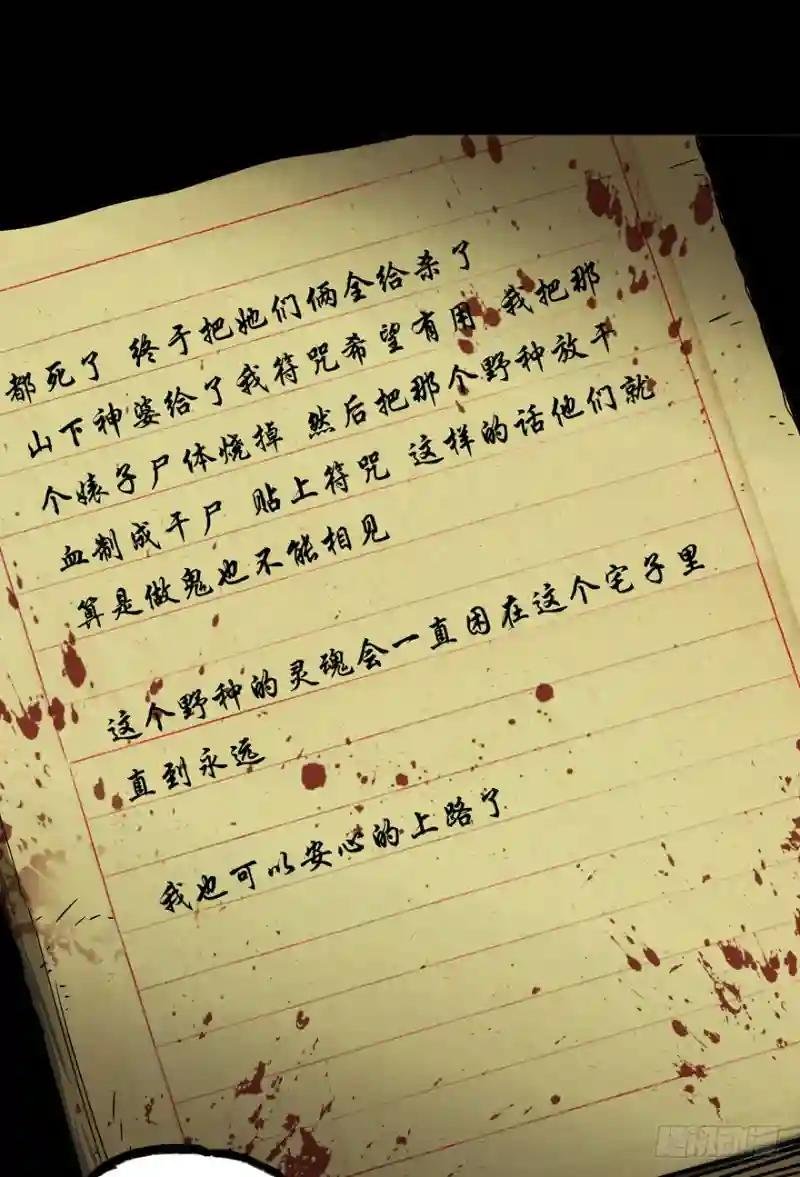 都死了 终于把她们俩全给杀了
山下神婆给了我符咒希望有用 我把那
个婊子尸体烧掉 然后把那个野种放干
血制成干尸 贴上符咒 这样的话他们就
算是做鬼也不能相见
这个野种的灵魂会一直困在这个宅子里
直到永远
我也可以安心的上路了